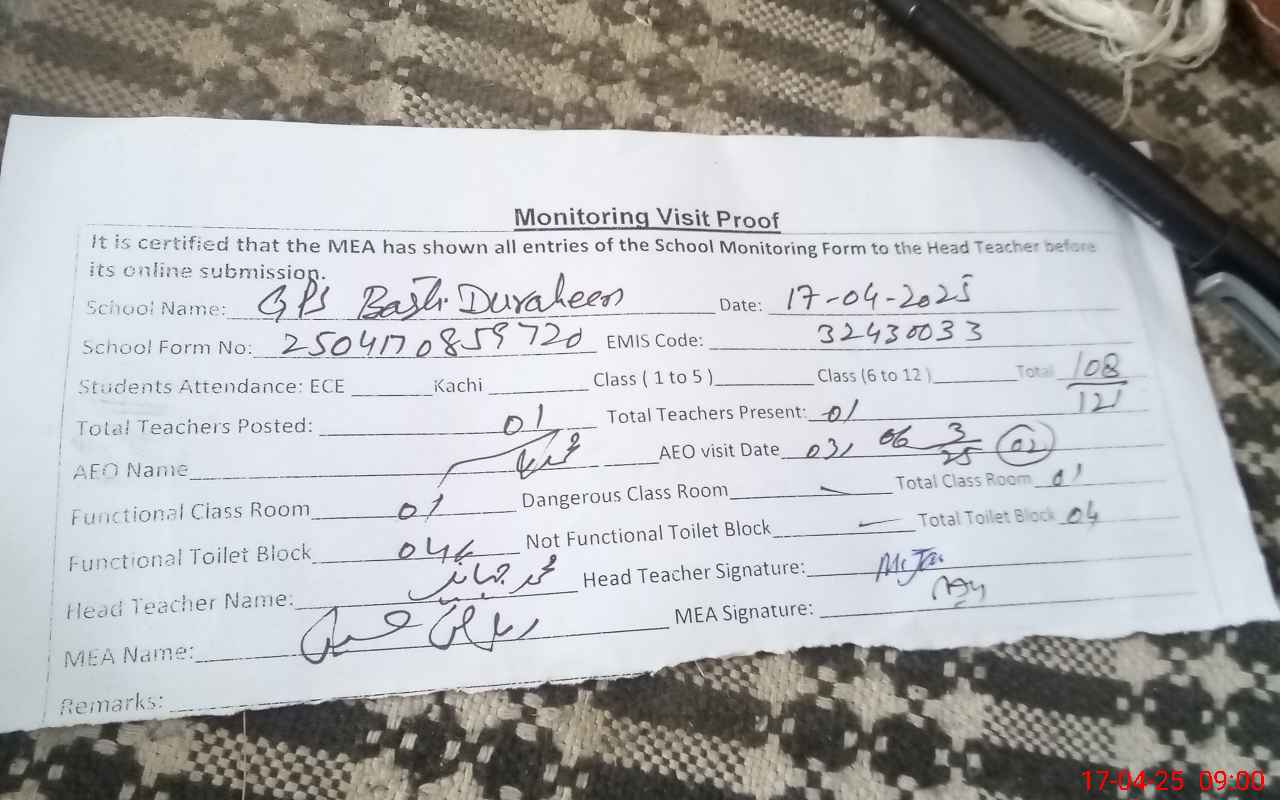 Monitoring Visit Proof
It is certified that the MEA has shown all entries of the School Monitoring Form to the Head Teacher before
its online submission.
School Name: GPS Basti Duraheen Date: 17-04-2025
School Form No: 2504170859720 EMIS Code: 32430033
Students Attendance: ECE Kachi Class ( 1 to 5 ) Class (6 to 12 ) Total 108
121
Total Teachers Posted: 01 Total Teachers Present: 01
AEO Name AEO visit Date 03, 06 3/25 02
Functional Class Room 01 Dangerous Class Room - Total Class Room 01
Functional Toilet Block 04 Not Functional Toilet Block - Total Toilet Block 04
Head Teacher Name: محمد Head Teacher Signature:
MEA Name: MEA Signature:
Remarks:
17-04-25 09:00